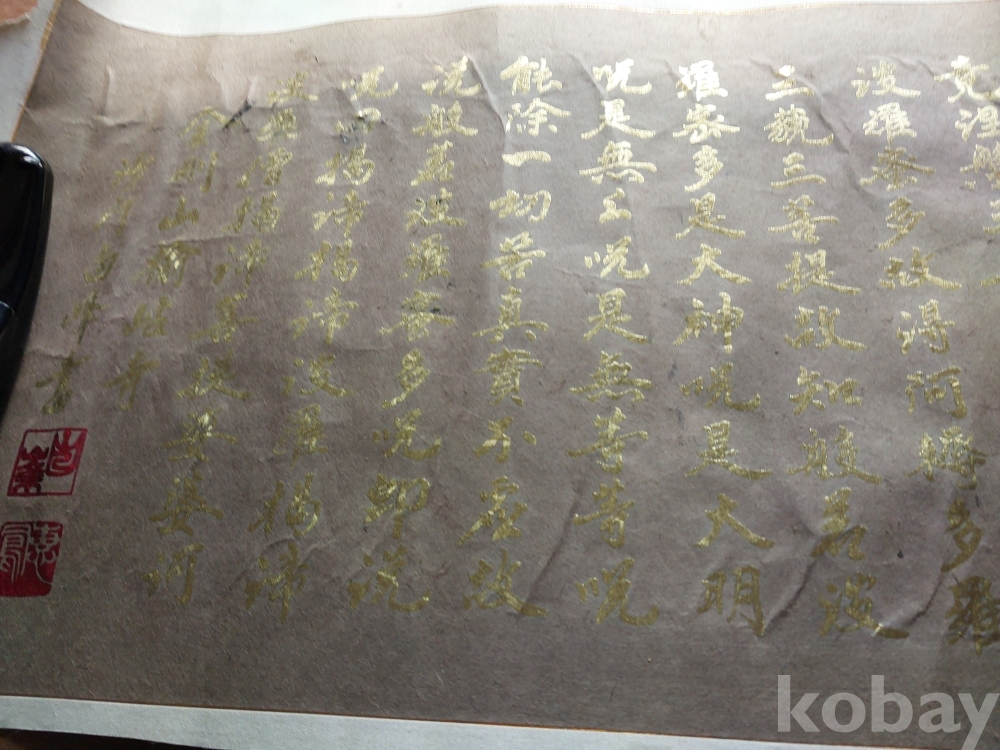 竟涅槃三
波羅蜜多故得阿耨多羅
三藐三菩提故知般若波
羅蜜多是大神咒是大明
咒是無上咒是無等等咒
能除一切苦真實不虛故
說般若波羅蜜多咒即說
咒曰揭諦揭諦波羅揭諦
波羅僧揭諦菩提娑婆訶
金剛山
書
kobay